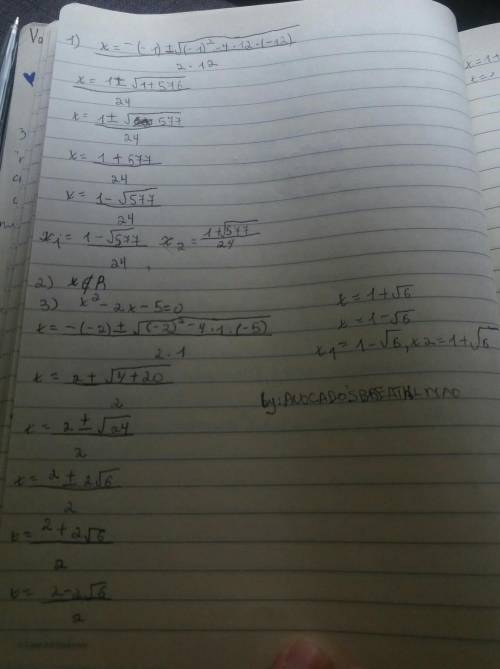 1) x = -(-1) ± √(-1)² - 4 · 12 · (-12)
2 · 12
x = 1 ± √1 + 576
24
x = 1 ± √577
24
x = 1 + 577
24
x = 1 - √577
24
x₁ = 1 - √577 x₂ = 1 + √577
24 24
2) x∉R
3) x² - 2x - 5 = 0
x = -(-2) ± √(-2)² - 4 · 1 · (-5)
2 · 1
x = 2 ± √4 + 20
2
x = 2 ± √24
2
x = 2 ± 2√6
2
x = 2 + 2√6
2
x = 2 - 2√6
2
x = 1 + √6
x = 1 - √6
x₁ = 1 - √6, x2 = 1 + √6
by: AVOCADO'SBREATHLMAO